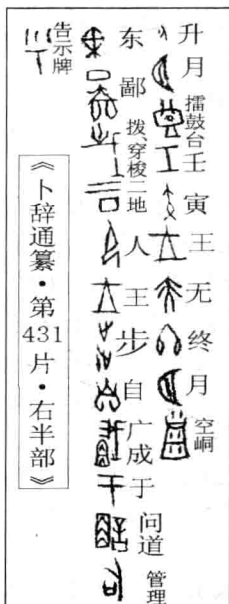 升
月
擂鼓台
壬
寅
王
无
终
月
空峒
东
鄙
拨、穿梭
二地
人
王
步
自
广成
于
问道
管理
告示牌
《卜辞通纂·第431片·右半部》